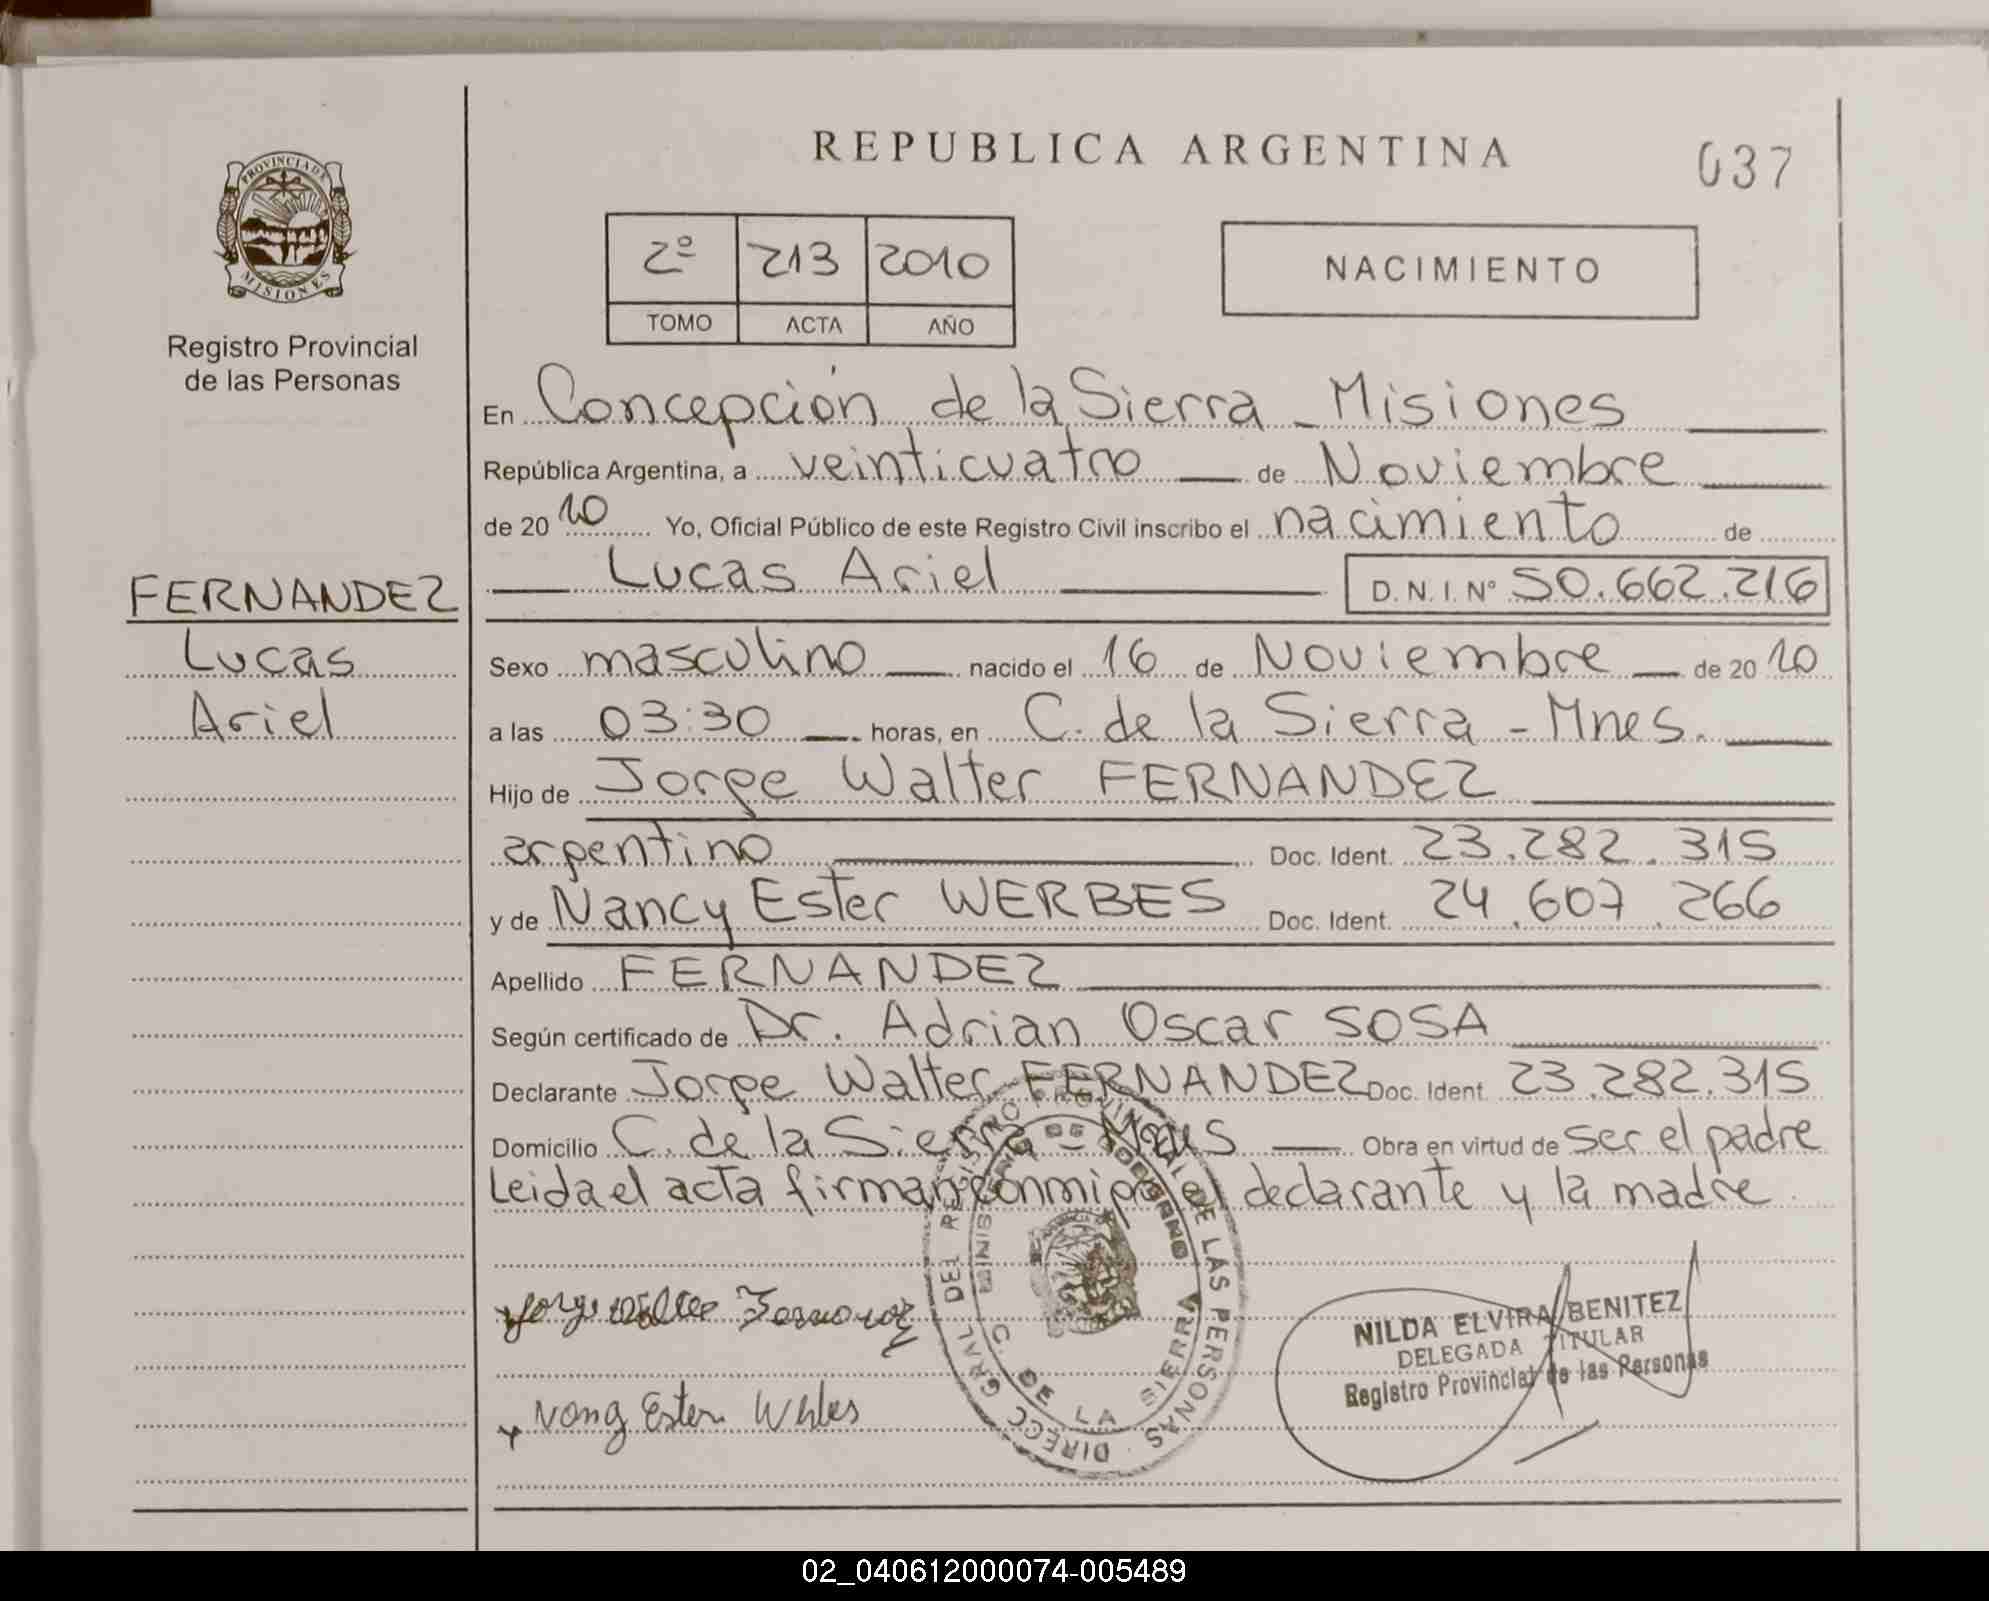 PROVINCIA DE
MISIONES
Registro Provincial
de las Personas
FERNANDEZ
Lucas
Ariel
REPUBLICA ARGENTINA
037
2º 213 2010
TOMO ACTA AÑO
NACIMIENTO
En Concepción de la Sierra - Misiones
República Argentina, a veinticuatro de Noviembre
de 2010 Yo, Oficial Público de este Registro Civil inscribo el nacimiento de
Lucas Ariel D.N.I. Nº 50.662.216
Sexo masculino nacido el 16 de Noviembre de 2010
a las 03:30 horas, en C. de la Sierra - Mnes.
Hijo de Jorge Walter FERNANDEZ
argentino Doc. Ident. 23.282.315
y de Nancy Ester WERBES Doc. Ident. 24.607.266
Apellido FERNANDEZ
Según certificado de Dr. Adrian Oscar SOSA
Declarante Jorge Walter FERNANDEZ Doc. Ident. 23.282.315
Domicilio C. de la Sierra - Mnes Obra en virtud de ser el padre
Leida el acta firman conmigo el declarante y la madre
DIRECC GRAL DEL REGISTRO PROVINCIAL DE LAS PERSONAS
MINISTERIO DE GOBIERNO
C. DE LA SIERRA
NILDA ELVIRA BENITEZ
DELEGADA TITULAR
Registro Provincial de las Personas
Nancy Ester Werbes
02_040612000074-005489